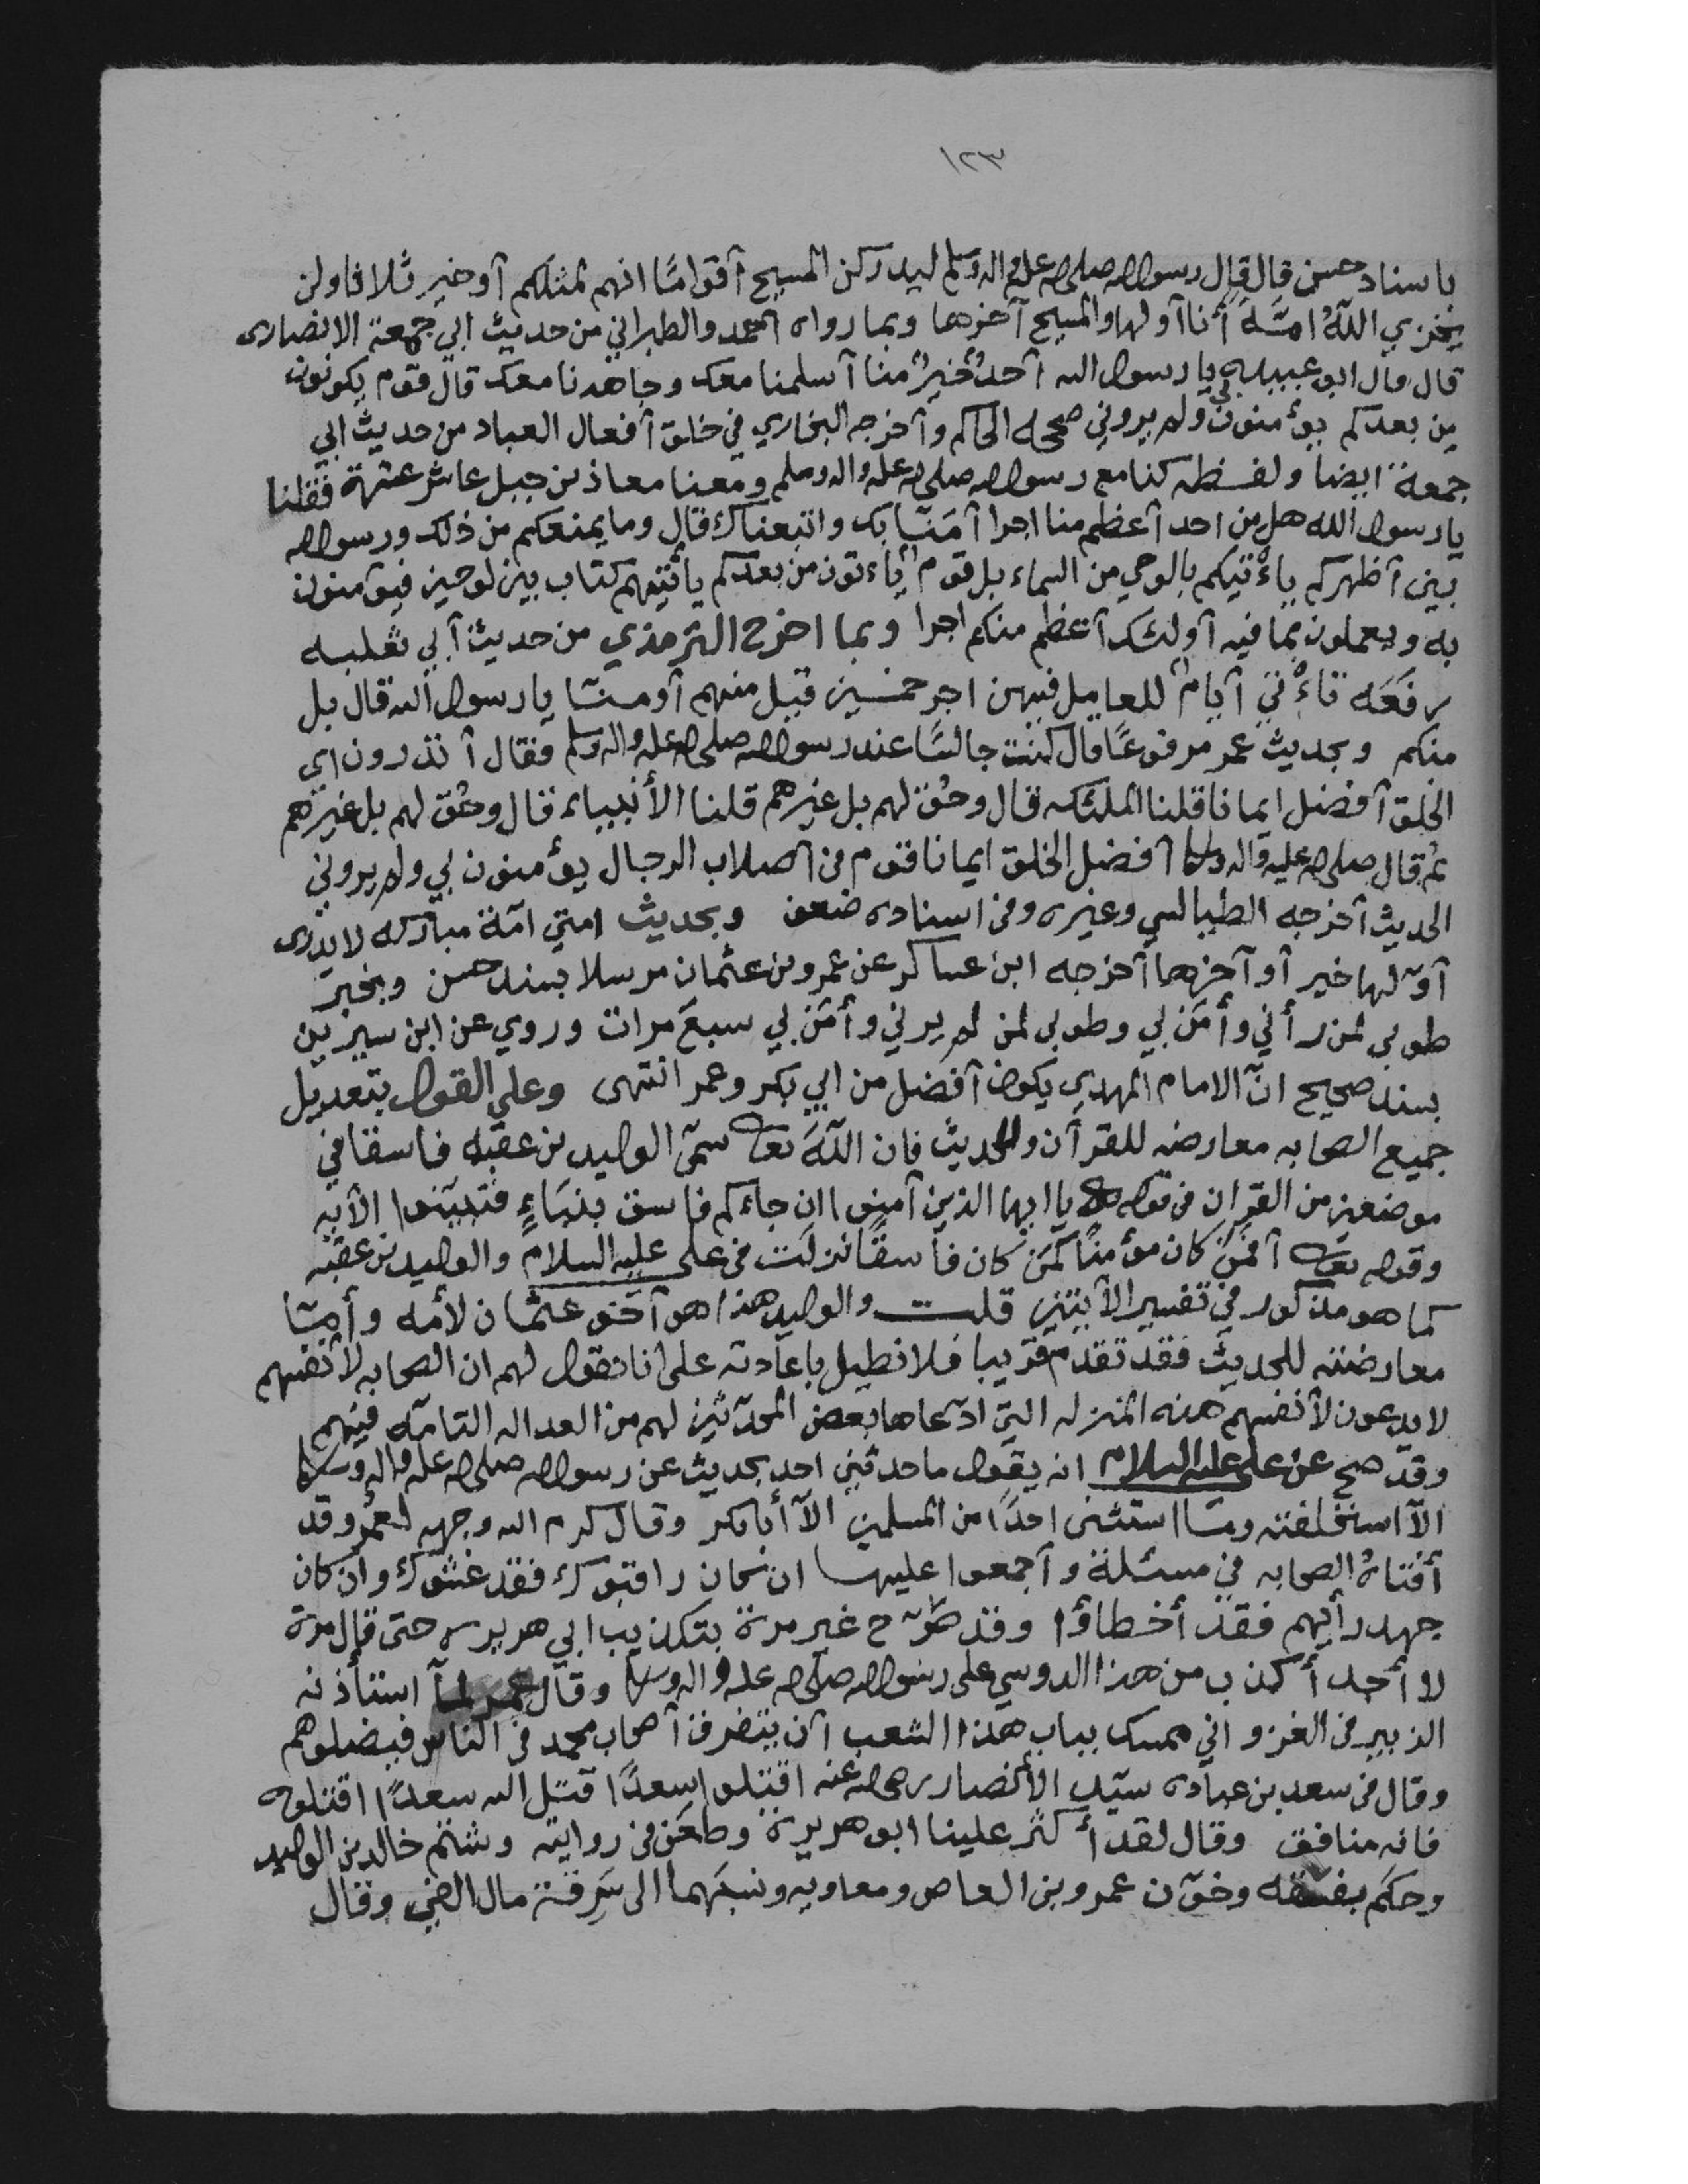 ١٢٣
باسناد حسن قال قال رسول الله صلى الله عليه واله وسلم ليدركن المسيح أقواما انهم لمثلكم أو خير ثلاثا ولن
يخزي اللهُ امّة أنا أولها والمسيح آخرها وبما رواه احمد والطبراني من حديث ابي جمعة الانصارى
قال قال ابو عبيده يا رسول الله أحدٌ خيرٌ منا أسلمنا معك وجاهدنا معك قال قوم يكونون
من بعدكم يؤمنون بي ولم يروني صححه الحاكم وأخرجه البخاري في خلق أفعال العباد من حديث ابي
جمعة ايضا ولفظه كنا مع رسول الله صلى الله عليه واله وسلم ومعنا معاذ بن جبل عاشر عشرة فقلنا
يا رسول الله هل من احد أعظم منا اجرا آمَنّا بك واتبعناك قال وما يمنعكم من ذلك ورسول الله
بين أظهركم يأتيكم بالوحي من السماء بل قوم يأتون من بعدكم يأتيهم كتاب بين لوحين فيؤمنون
به ويعملون بما فيه أولئك أعظم منكم اجرا وبما اخرج الترمذي من حديث أبي ثعلبه
رفَعَه تأتي أيام للعامل فيهن اجر خمسين قيل منهم أو منّا يا رسول الله قال بل
منكم وبحديث عمر مرفوعًا قال كنت جالسًا عند رسول الله صلى الله عليه واله وسلم فقال أتدرون اي
الخلق أفضل ايمانا قلنا الملئكه قال وحُق لهم بل غيرهم قلنا الأنبياء قال وحُق لهم بل غيرهم
ثم قال صلى الله عليه واله وسلم أفضل الخلق ايمانا قوم في أصلاب الرجال يؤمنون بي ولم يروني
الحديث أخرجه الطيالسي وغيره وفي اسناده ضعف وبحديث امتي امّة مباركه لا يدرى
أوّلها خير أو آخرها أخرجه ابن عساكر عن عمرو بن عثمان مرسلا بسند حسن وبخبر
طوبى لمن رأني وأمَن بي وطوبى لمن لم يرني وأمَن بي سبعَ مرات وروي عن ابن سيرين
بسند صحيح انّ الامام المهدي يكون أفضل من ابي بكر وعمر انتهى وعلى القول بتعديل
جميع الصحابه معارضه للقرآن وللحديث فان اللهَ تعالى سمّى الوليد بن عقبه فاسقا في
موضعين من القران في قوله يا ايها الذين آمنوا ان جاءكم فاسق بنبَاءٍ فتبيّنوا الآيه
وقوله تعالى أفمَن كان مؤمنًا كمَن كان فاسقًا نزلت في علي عليه السلام والوليد بن عقبه
كما هو مذكور في تفسير الآيتين قلت والوليد هذا هو أخو عثمان لأمه وأمّا
معارضته للحديث فقد تقدم قريبا فلا نطيل باعادته على انا نقول لهم ان الصحابه لأنفسهم
لا يدعون لأنفسهم هذه المنزله التي ادّعاها بعض المحدّثين لهم من العداله التامّه فيهم
وقد صح عن علي عليه السلام انه يقول ما حدثني احد بحديث عن رسول الله صلى الله عليه واله وسلم
الاّ استحلفته وما استثنى احدًا من المسلمين الاّ أبا بكر وقال كرم الله وجهه لعمر وقد
أفتاهُ الصحابه في مسئلة وأجمعوا عليها ان كان راقبوك فقد غشوك وان كان
جهد رأيهم فقد أخطاؤا وقد صرّح غير مرة بتكذيب ابي هريره حتى قال مرة
لا أجد أكذب من هذا الدوسي على رسول الله صلى الله عليه واله وسلم وقال عمر لمّا استأذنه
الزبير في الغزو اني ممسك بباب هذا الشعب أن يتفرق أصحاب محمد في الناس فيضلوهم
وقال في سعد بن عباده سيّد الأنصار رضي الله عنه اقتلوا سعدًا قتل الله سعدًا اقتلوه
فانه منافق وقال لقد أكثر علينا ابو هريرة وطعَن في روايته وشتم خالد بن الوليد
وحكم بفسقه وخوّن عمرو بن العاص ومعاويه ونسبَهما الى سَرِقة مال الفئ وقال